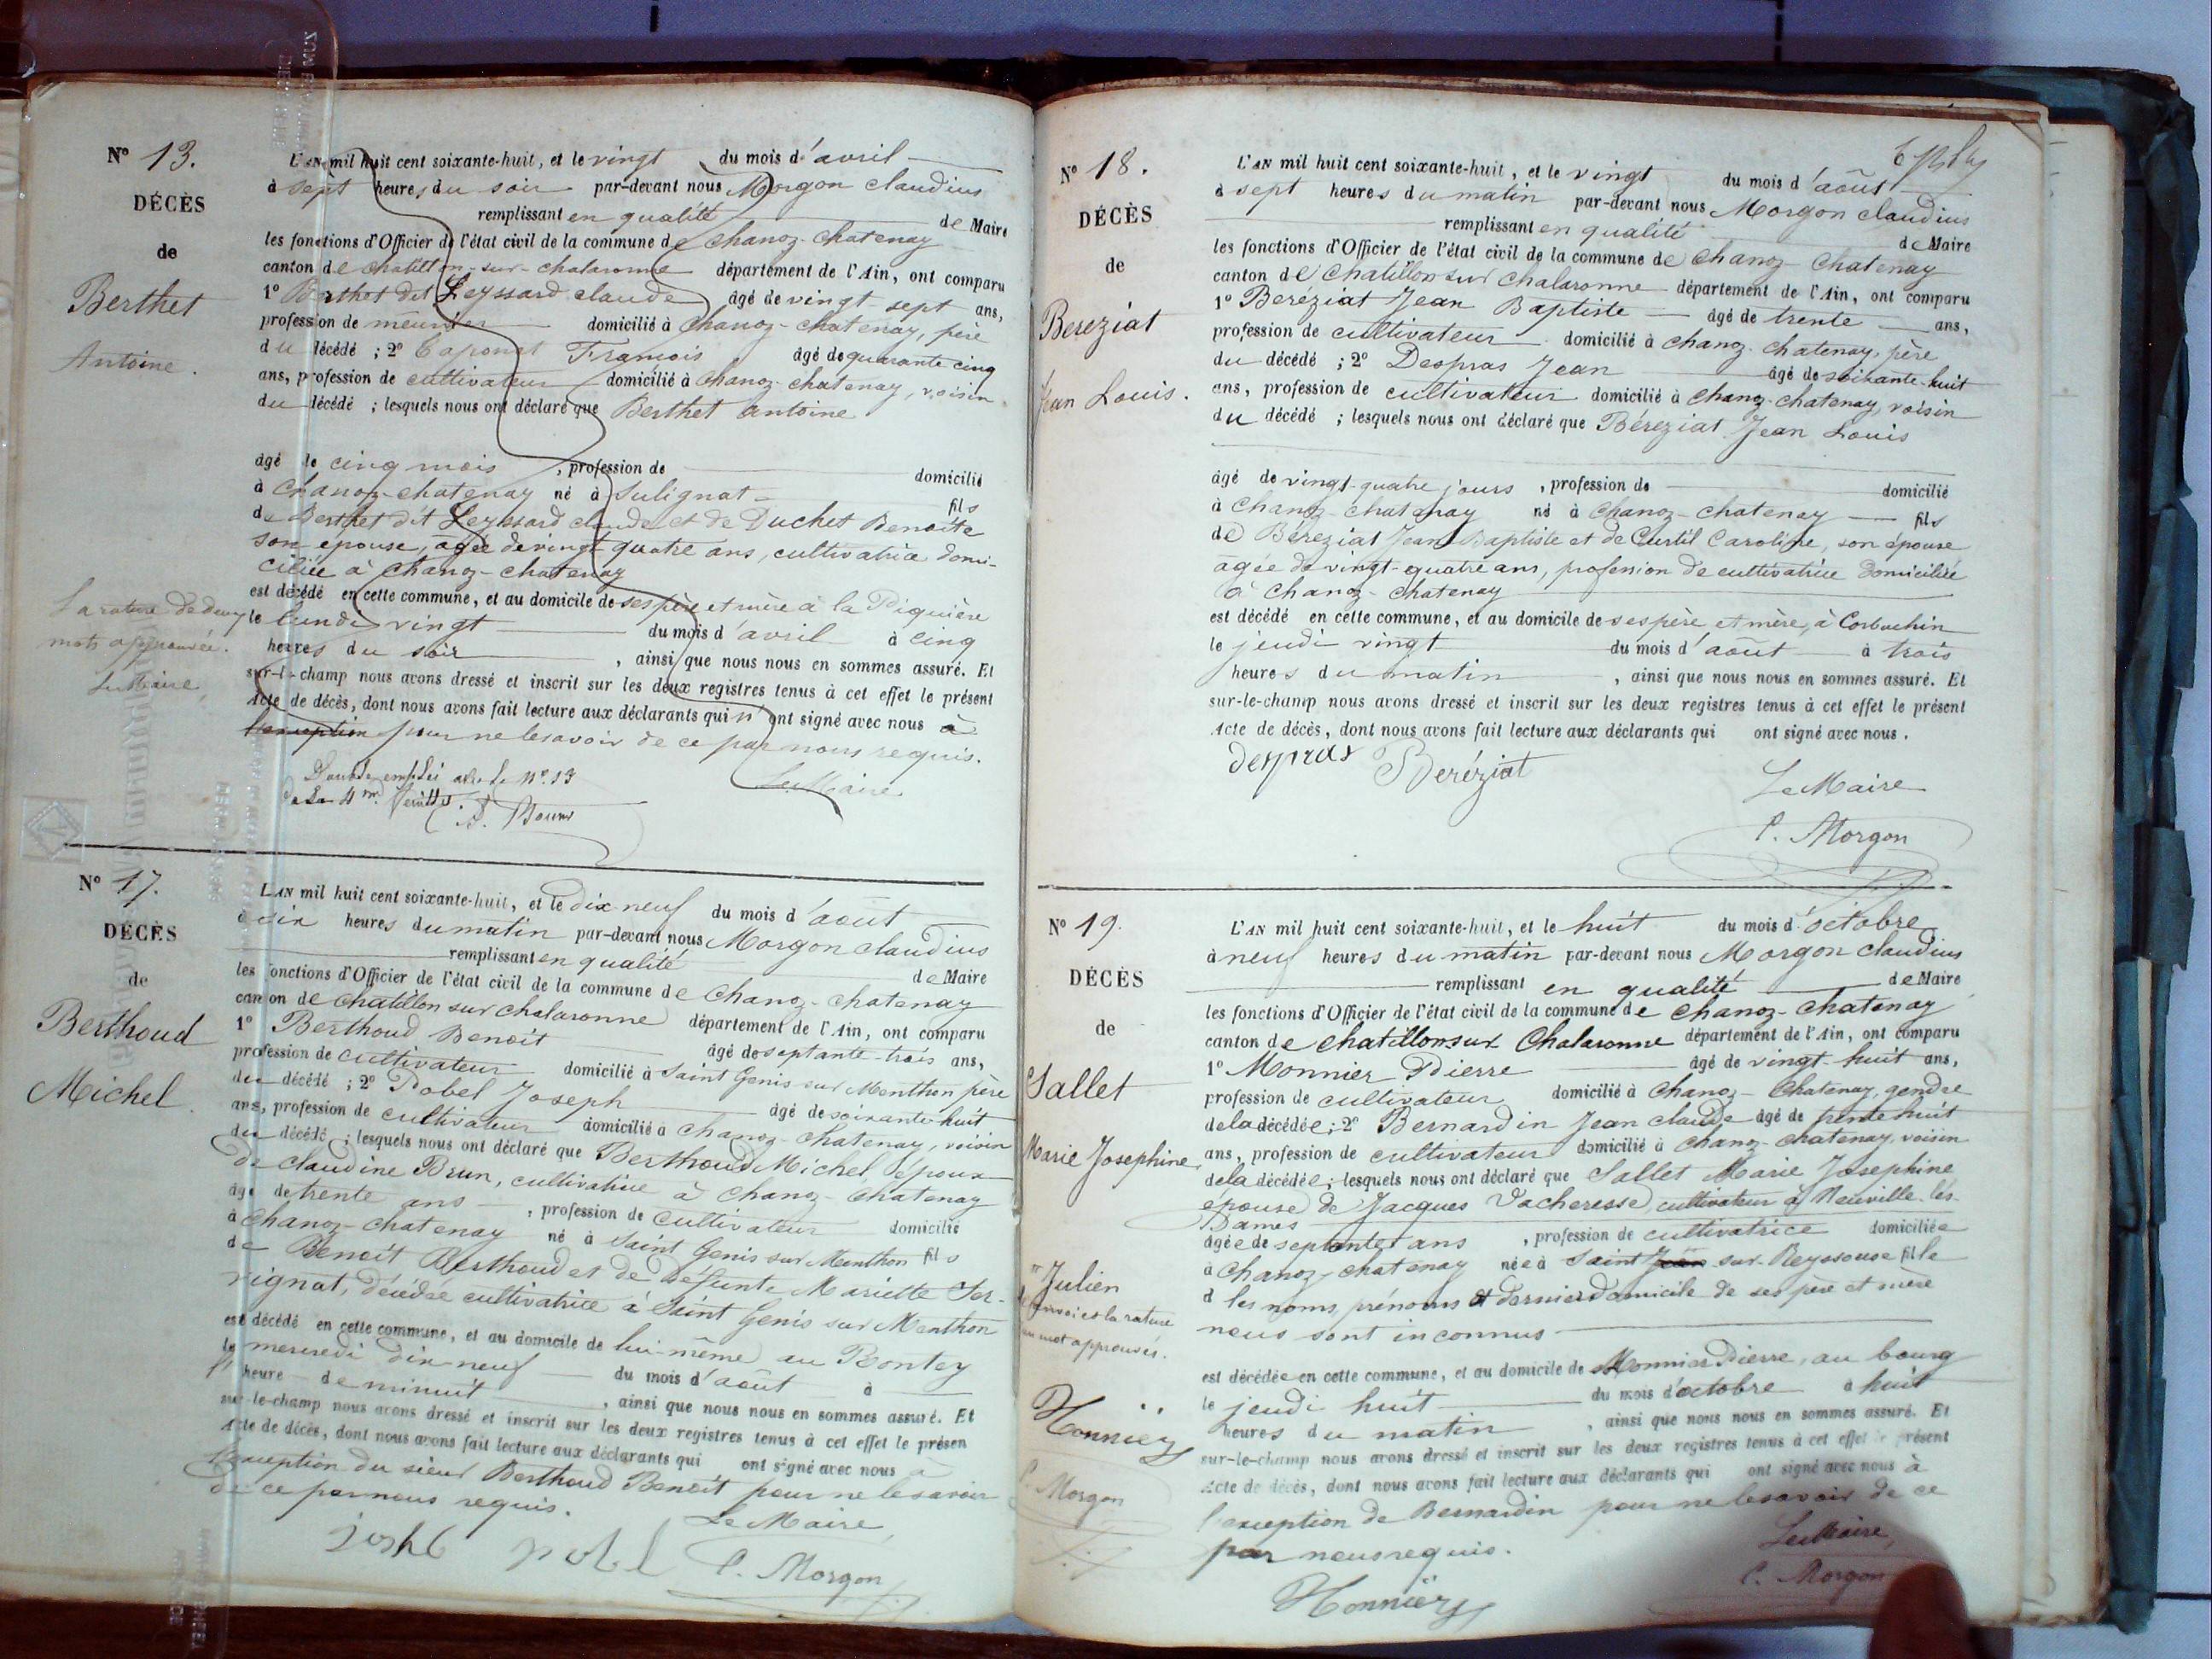 N° 13.
DÉCÈS
de
Berthet
Antoine.
L'AN mil huit cent soixante-huit, et le vingt du mois d'avril
à sept heures du soir par-devant nous Morgon Claudius
remplissant en qualité de Maire
les fonctions d'Officier de l'état civil de la commune de Chanoz-Chatenay
canton de Chatillon-sur-Chalaronne département de l'Ain, ont comparu
1° Berthet dit Leyssard Claude âgé de vingt-sept ans,
profession de meunier domicilié à Chanoz-Chatenay, père
du décédé ; 2° Caponat François âgé de quarante cinq
ans, profession de cultivateur domicilié à Chanoz-Chatenay, voisin
du décédé ; lesquels nous ont déclaré que Berthet Antoine
âgé de cinq mois, profession de domicilié
à Chanoz-Chatenay né à Sulignat fils
de Berthet dit Leyssard Claude et de Duchet Benoîte
son épouse, âgée de vingt quatre ans, cultivatrice domi-
ciliée à Chanoz-Chatenay
est décédé en cette commune, et au domicile de ses père et mère à la Piquière
le lundi vingt du mois d'avril à cinq
heures du soir, ainsi que nous nous en sommes assuré. Et
sur-le-champ nous avons dressé et inscrit sur les deux registres tenus à cet effet le présent
Acte de décès, dont nous avons fait lecture aux déclarants qui n'ont signé avec nous à
l'exception pour ne le savoir de ce par nous requis.
Le Maire
La rature de deux
mots approuvée.
Le Maire
Double emploi avec le N° 13
de la 4me feuille.
N° 17.
DÉCÈS
de
Berthoud
Michel
L'AN mil huit cent soixante-huit, et le dix-neuf du mois d'août
à six heures du matin par-devant nous Morgon Claudius
remplissant en qualité de Maire
les fonctions d'Officier de l'état civil de la commune de Chanoz-Chatenay
canton de Chatillon sur Chalaronne département de l'Ain, ont comparu
1° Berthoud Benoit âgé de septante-trois ans,
profession de cultivateur domicilié à Saint Genis sur Menthon père
du décédé ; 2° Pobel Joseph âgé de soixante-huit
ans, profession de cultivateur domicilié à Chanoz-Chatenay, voisin
du décédé ; lesquels nous ont déclaré que Berthoud Michel, époux
de Claudine Brun, cultivatrice à Chanoz-Chatenay
âgé de trente ans, profession de cultivateur domicilié
à Chanoz-Chatenay né à Saint Genis sur Menthon fils
de Benoit Berthoud et de défunte Mariette Ser-
vignat, décédée cultivatrice à Saint Genis sur Menthon
est décédé en cette commune, et au domicile de lui-même au Bontey
le mercredi dix-neuf du mois d'août à
l'heure de minuit, ainsi que nous nous en sommes assuré. Et
sur-le-champ nous avons dressé et inscrit sur les deux registres tenus à cet effet le présen
Acte de décès, dont nous avons fait lecture aux déclarants qui ont signé avec nous à
l'exception du sieur Berthoud Benoit pour ne le savoir
de ce par nous requis.
Le Maire
C. Morgon
N° 18.
DÉCÈS
de
Bereziat
Jean Louis.
L'AN mil huit cent soixante-huit, et le vingt du mois d'août
à sept heures du matin par-devant nous Morgon Claudius
remplissant en qualité de Maire
les fonctions d'Officier de l'état civil de la commune de Chanoz Chatenay
canton de Chatillon sur Chalaronne département de l'Ain, ont comparu
1° Beréziat Jean Baptiste âgé de trente ans,
profession de cultivateur domicilié à Chanoz-Chatenay, père
du décédé ; 2° Despras Jean âgé de soixante-huit
ans, profession de cultivateur domicilié à Chanoz-Chatenay, voisin
du décédé ; lesquels nous ont déclaré que Béreziat Jean Louis
âgé de vingt-quatre jours, profession de domicilié
à Chanoz-Chatenay né à Chanoz-Chatenay fils
de Béreziat Jean Baptiste et de Curtil Caroline, son épouse
âgée de vingt-quatre ans, profession de cultivatrice domiciliée
à Chanoz-Chatenay
est décédé en cette commune, et au domicile de ses père et mère, à Corbuchin
le jeudi vingt du mois d'août à trois
heures du matin, ainsi que nous nous en sommes assuré. Et
sur-le-champ nous avons dressé et inscrit sur les deux registres tenus à cet effet le présent
Acte de décès, dont nous avons fait lecture aux déclarants qui ont signé avec nous.
despras Beréziat
Le Maire
C. Morgon
N° 19.
DÉCÈS
de
Sallet
Marie Josephine
L'AN mil huit cent soixante-huit, et le huit du mois d'octobre
à neuf heures du matin par-devant nous Morgon Claudius
remplissant en qualité de Maire
les fonctions d'Officier de l'état civil de la commune de Chanoz-Chatenay
canton de Chatillon sur Chalaronne département de l'Ain, ont comparu
1° Monnier Pierre âgé de vingt-huit ans,
profession de cultivateur domicilié à Chanoz-Chatenay, gendre
de la décédée ; 2° Bernardin Jean Claude âgé de trente huit
ans, profession de cultivateur domicilié à Chanoz-Chatenay, voisin
de la décédée ; lesquels nous ont déclaré que Sallet Marie Josephine
épouse de Jacques Vacheresse cultivateur à Neuville-les-
Dames
âgée de septante ans, profession de cultivatrice domiciliée
à Chanoz-Chatenay née à Saint Jean sur Reyssouse fille
d les noms, prénoms et dernier domicile de ses père et mère
nous sont inconnus
est décédée en cette commune, et au domicile de Monnier Pierre, au bourg
le jeudi huit du mois d'octobre à huit
heures du matin, ainsi que nous nous en sommes assuré. Et
sur-le-champ nous avons dressé et inscrit sur les deux registres tenus à cet effet le présent
Acte de décès, dont nous avons fait lecture aux déclarants qui ont signé avec nous à
l'exception de Bernardin pour ne le savoir de ce
par nous requis.
Le Maire,
C. Morgon
Monnier
Julien
renvoi et la rature
un mot approuvés.
Monnier
C. Morgon